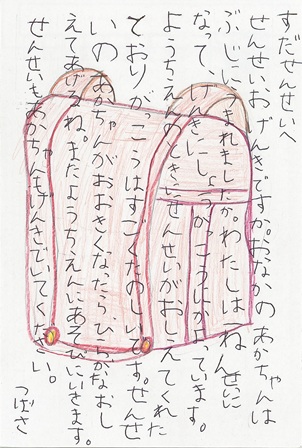 すだせんせいへ
せんせいおげんきですか。おなかのあかちゃんは
ぶじにうまれましたか。わたしは、1ねんせいに
なって、げんきにしょうがっこうにかよっています。
ようちえんのときにせんせいがおしえてくれた
とおりがっこうはすごくたのしいです。せんせ
いのあかちゃんがおおきくなったら、ひらがなおし
えてあげるね。またようちえんにあそびにいきます。
せんせいもあかちゃんもげんきでいてください。
つばさ